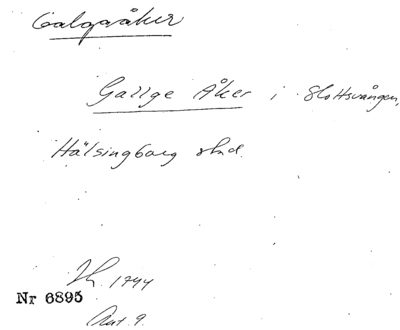 Galgaåker
Gallge Åker i Slottsvången,
Hälsingborg stad.
1744
Nr 6895
Akt 9.